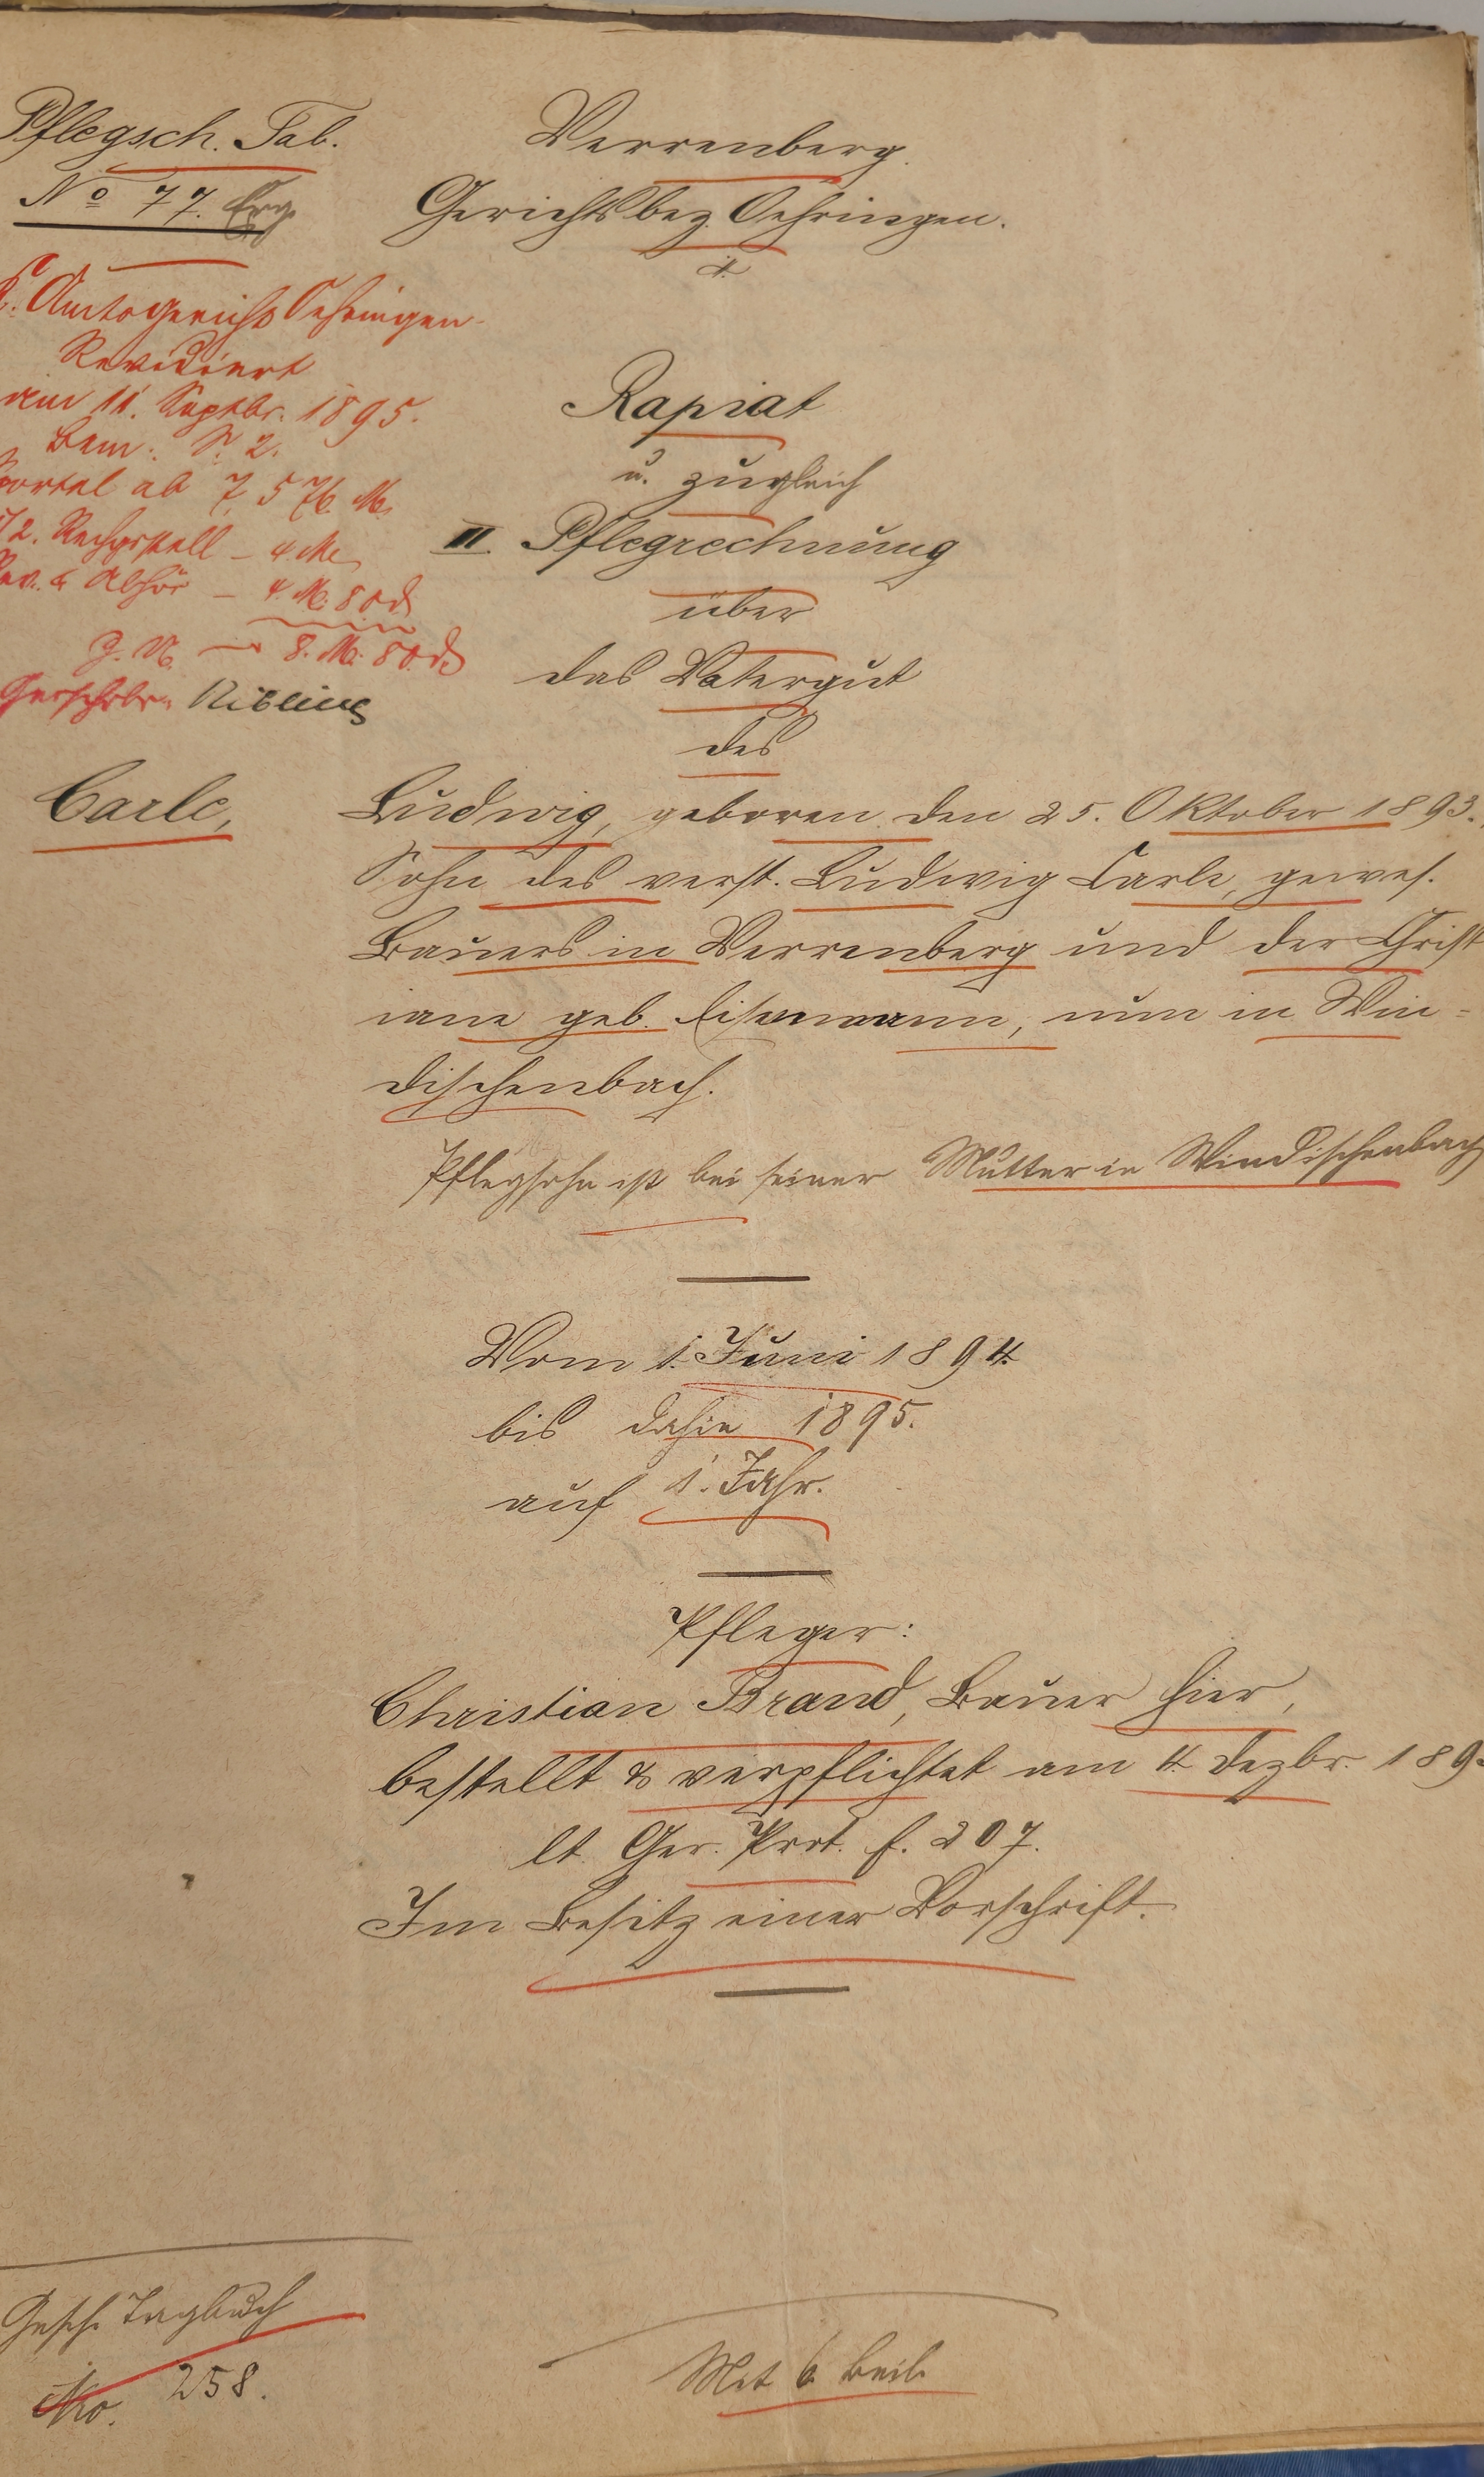 Pflegsch. Tab.
No 77.
Verrenberg.
Gerichtsbez. Oehringen.
K. Amtsgericht Oehringen
Revidiert
am 11. Septbr. 1895.
Bem. S. 2.
Sportel ab 7,576 M.
Rechgstell – 4 M.
Rev. & Abhör – 4 M. 80 d
z. N. – 8. M. 80 d
Gerschrbr.
Rapiat
u. zugleich
II. Pflegrechnung
über
das Vatergut
des
Carle,
Ludwig, geboren den 25. Oktober 1893.
Sohn des verst. Ludwig Carle, gewes.
Bauers in Verrenberg und der Christ
iane geb. Eisenmann, nun in Win=
dischenbach.
Pflegsohn ist bei seiner Mutter in Windischenbach
Vom 1. Juni 1894.
bis dahin 1895.
auf 1. Jahr.
Pfleger:
Christian Brand, Bauer hier,
bestellt & verpflichtet am 4. Dezbr. 189
lt. Ger. Prot. f. 207.
Im Besitz einer Vorschrift.
Gesch. Tagbuch
No. 258.
Mit 6 Beil.